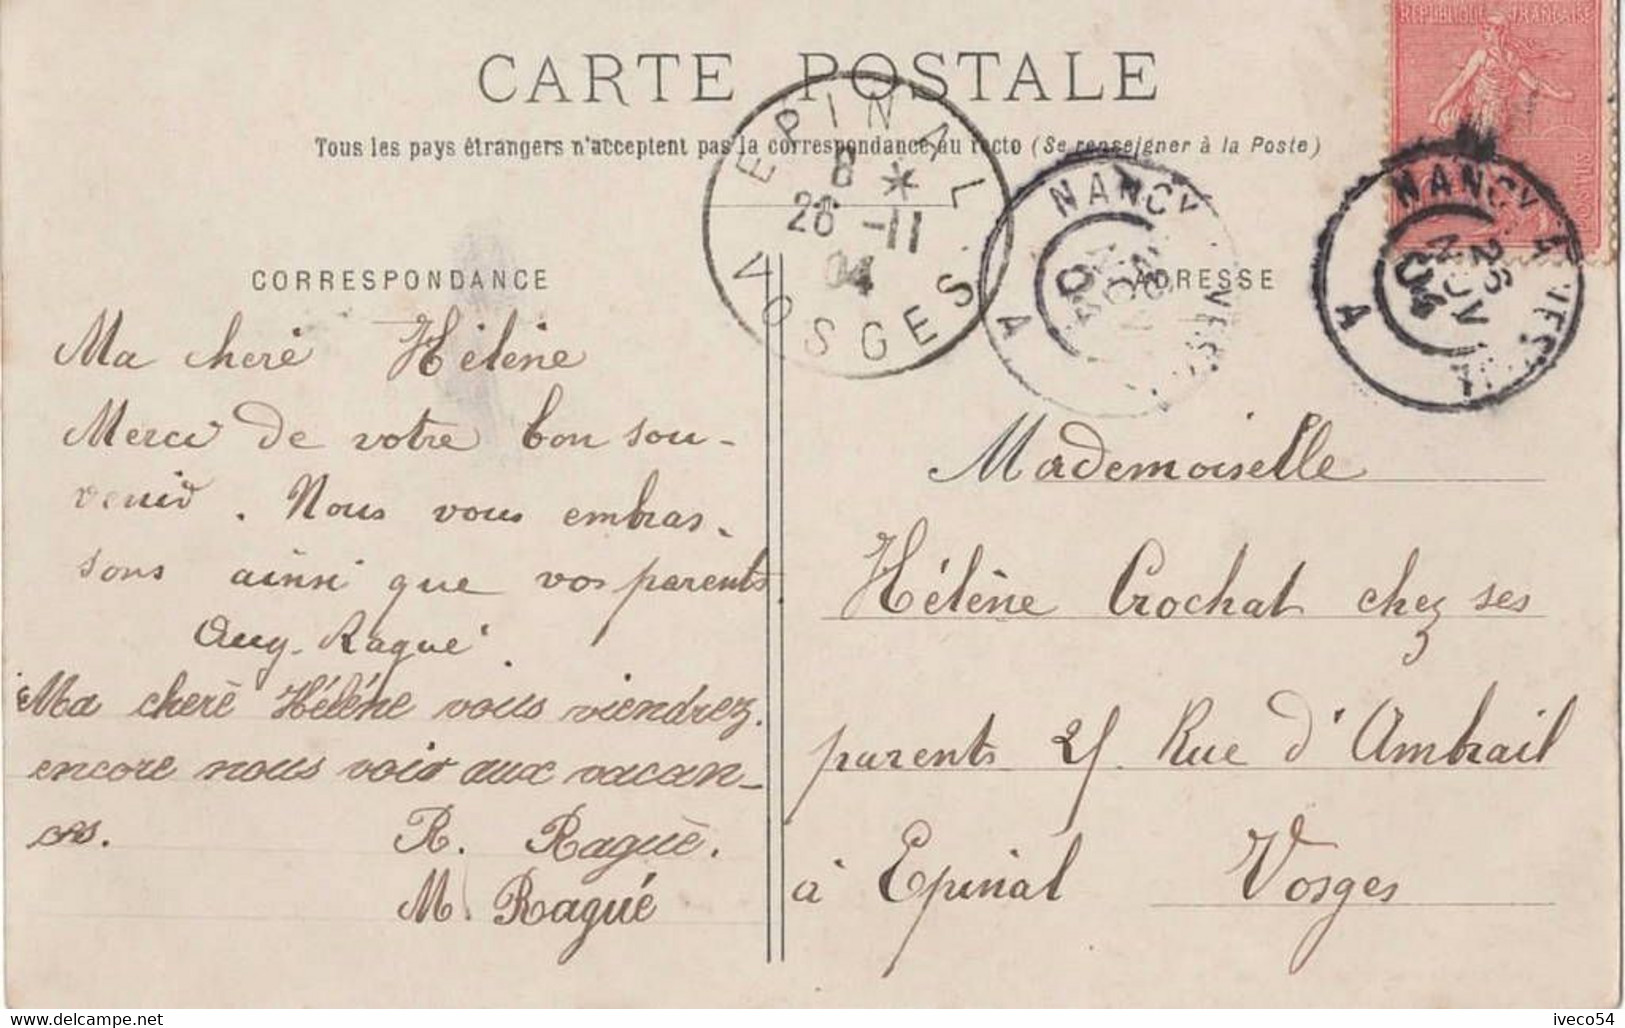 CARTE POSTALE
Tous les pays étrangers n'acceptent pas la correspondance au recto (Se renseigner à la Poste)
REPUBLIQUE FRANÇAISE
EPINAL
8 *
26 -11
04
VOSGES
NANCY
A
NANCY
26
NOV
04
A
CORRESPONDANCE
Ma cheré Héléne
Merci de votre bon sou-
venir. Nous vous embras-
sons ainsi que vos parents.
Aug. Ragué.
Ma cheré Héléne vous viendrez.
encore nous voir aux vacan-
ces.
R. Raguè.
M. Ragué
ADRESSE
Mademoiselle
Hélène Crochat chez ses
parents 25. Rue d'Ambrail
à Epinal Vosges
iveco54